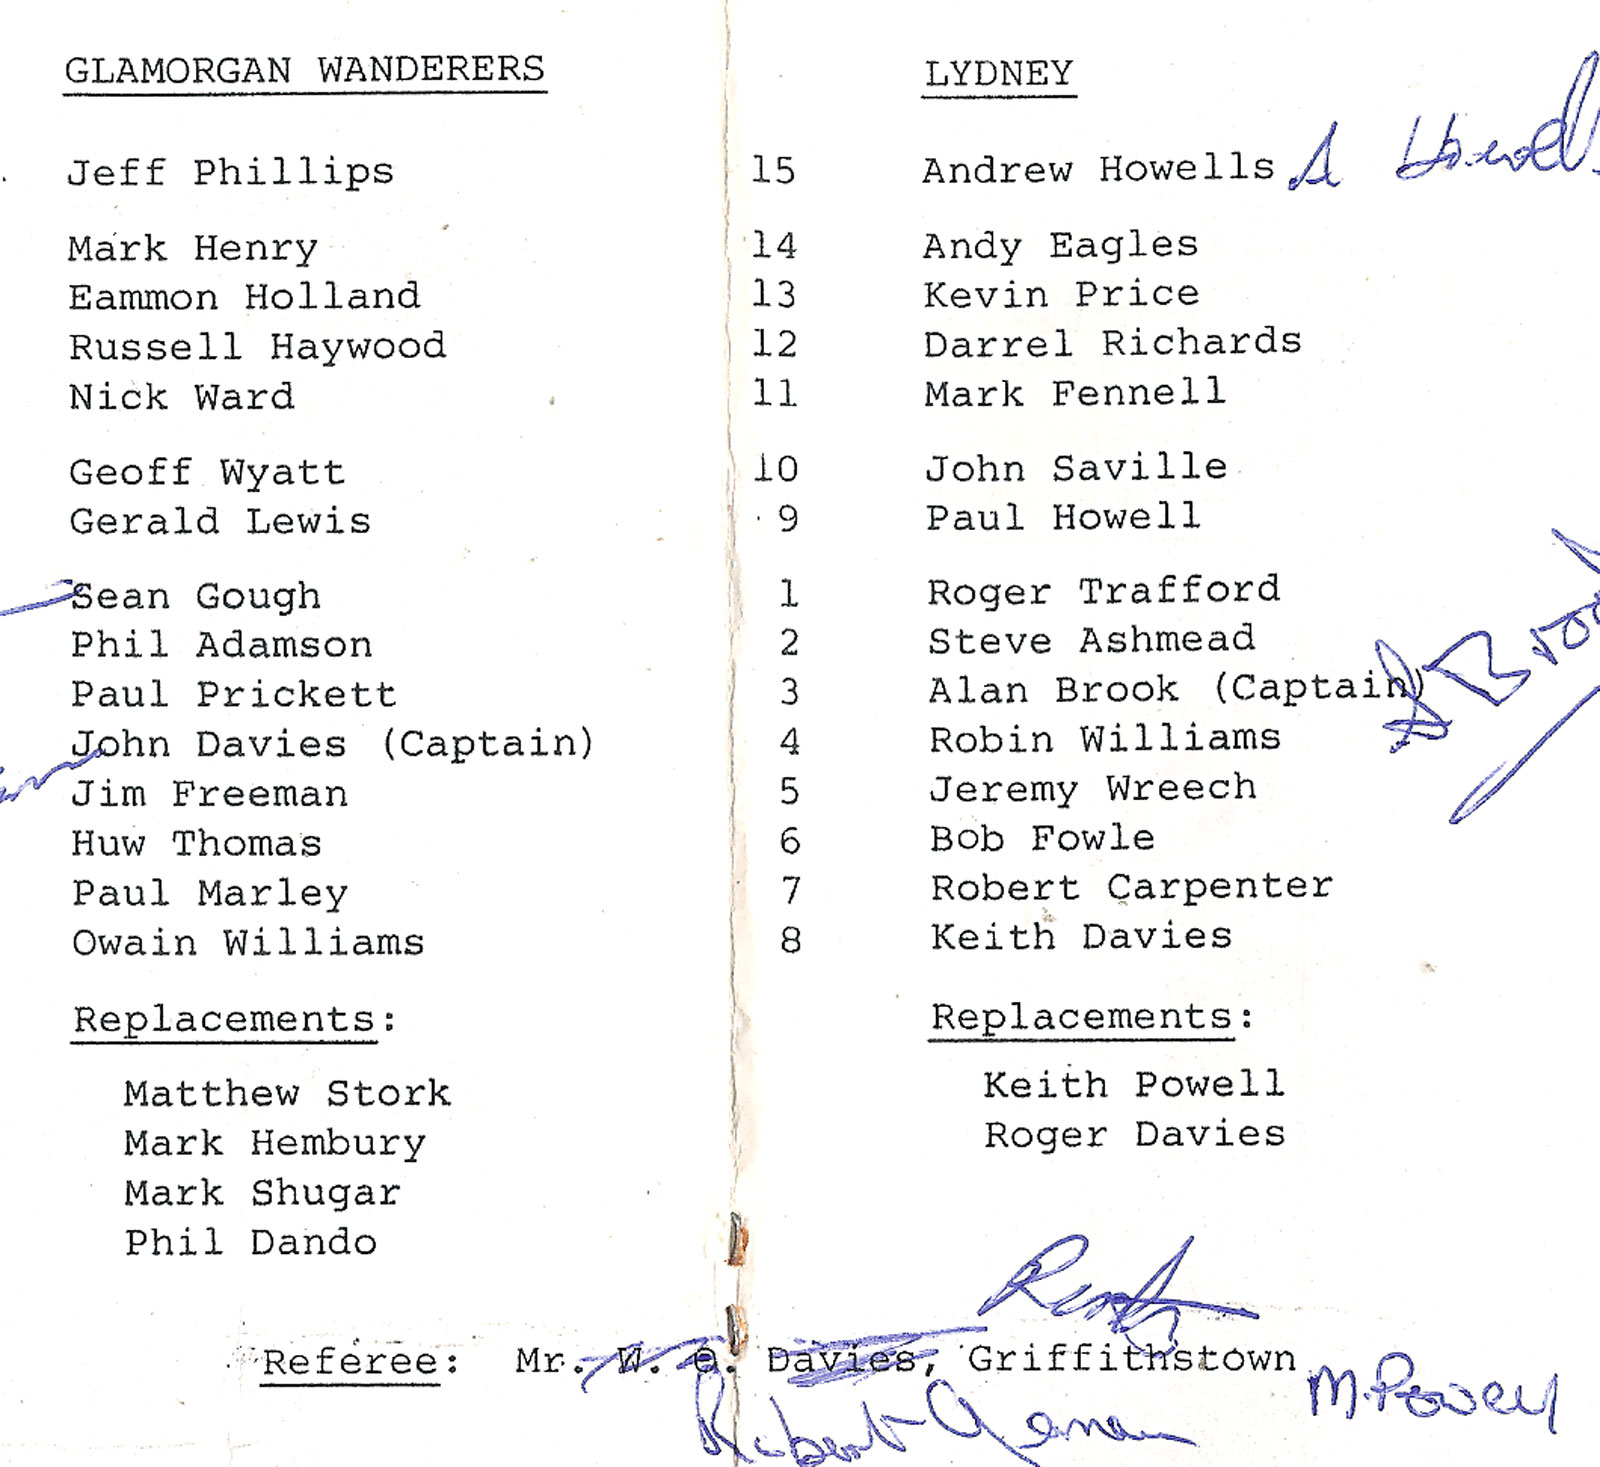 GLAMORGAN WANDERERS LYDNEY
Jeff Phillips 15 Andrew Howells A Howells
Mark Henry 14 Andy Eagles
Eammon Holland 13 Kevin Price
Russell Haywood 12 Darrel Richards
Nick Ward 11 Mark Fennell
Geoff Wyatt 10 John Saville
Gerald Lewis 9 Paul Howell
Sean Gough 1 Roger Trafford
Phil Adamson 2 Steve Ashmead
Paul Prickett 3 Alan Brook (Captain) A Broo
John Davies (Captain) 4 Robin Williams
Jim Freeman 5 Jeremy Wreech
Huw Thomas 6 Bob Fowle
Paul Marley 7 Robert Carpenter
Owain Williams 8 Keith Davies
Replacements: Replacements:
Matthew Stork Keith Powell
Mark Hembury Roger Davies
Mark Shugar
Phil Dando
Referee: Mr. W. Davies, Griffithstown
Robert M. Powell